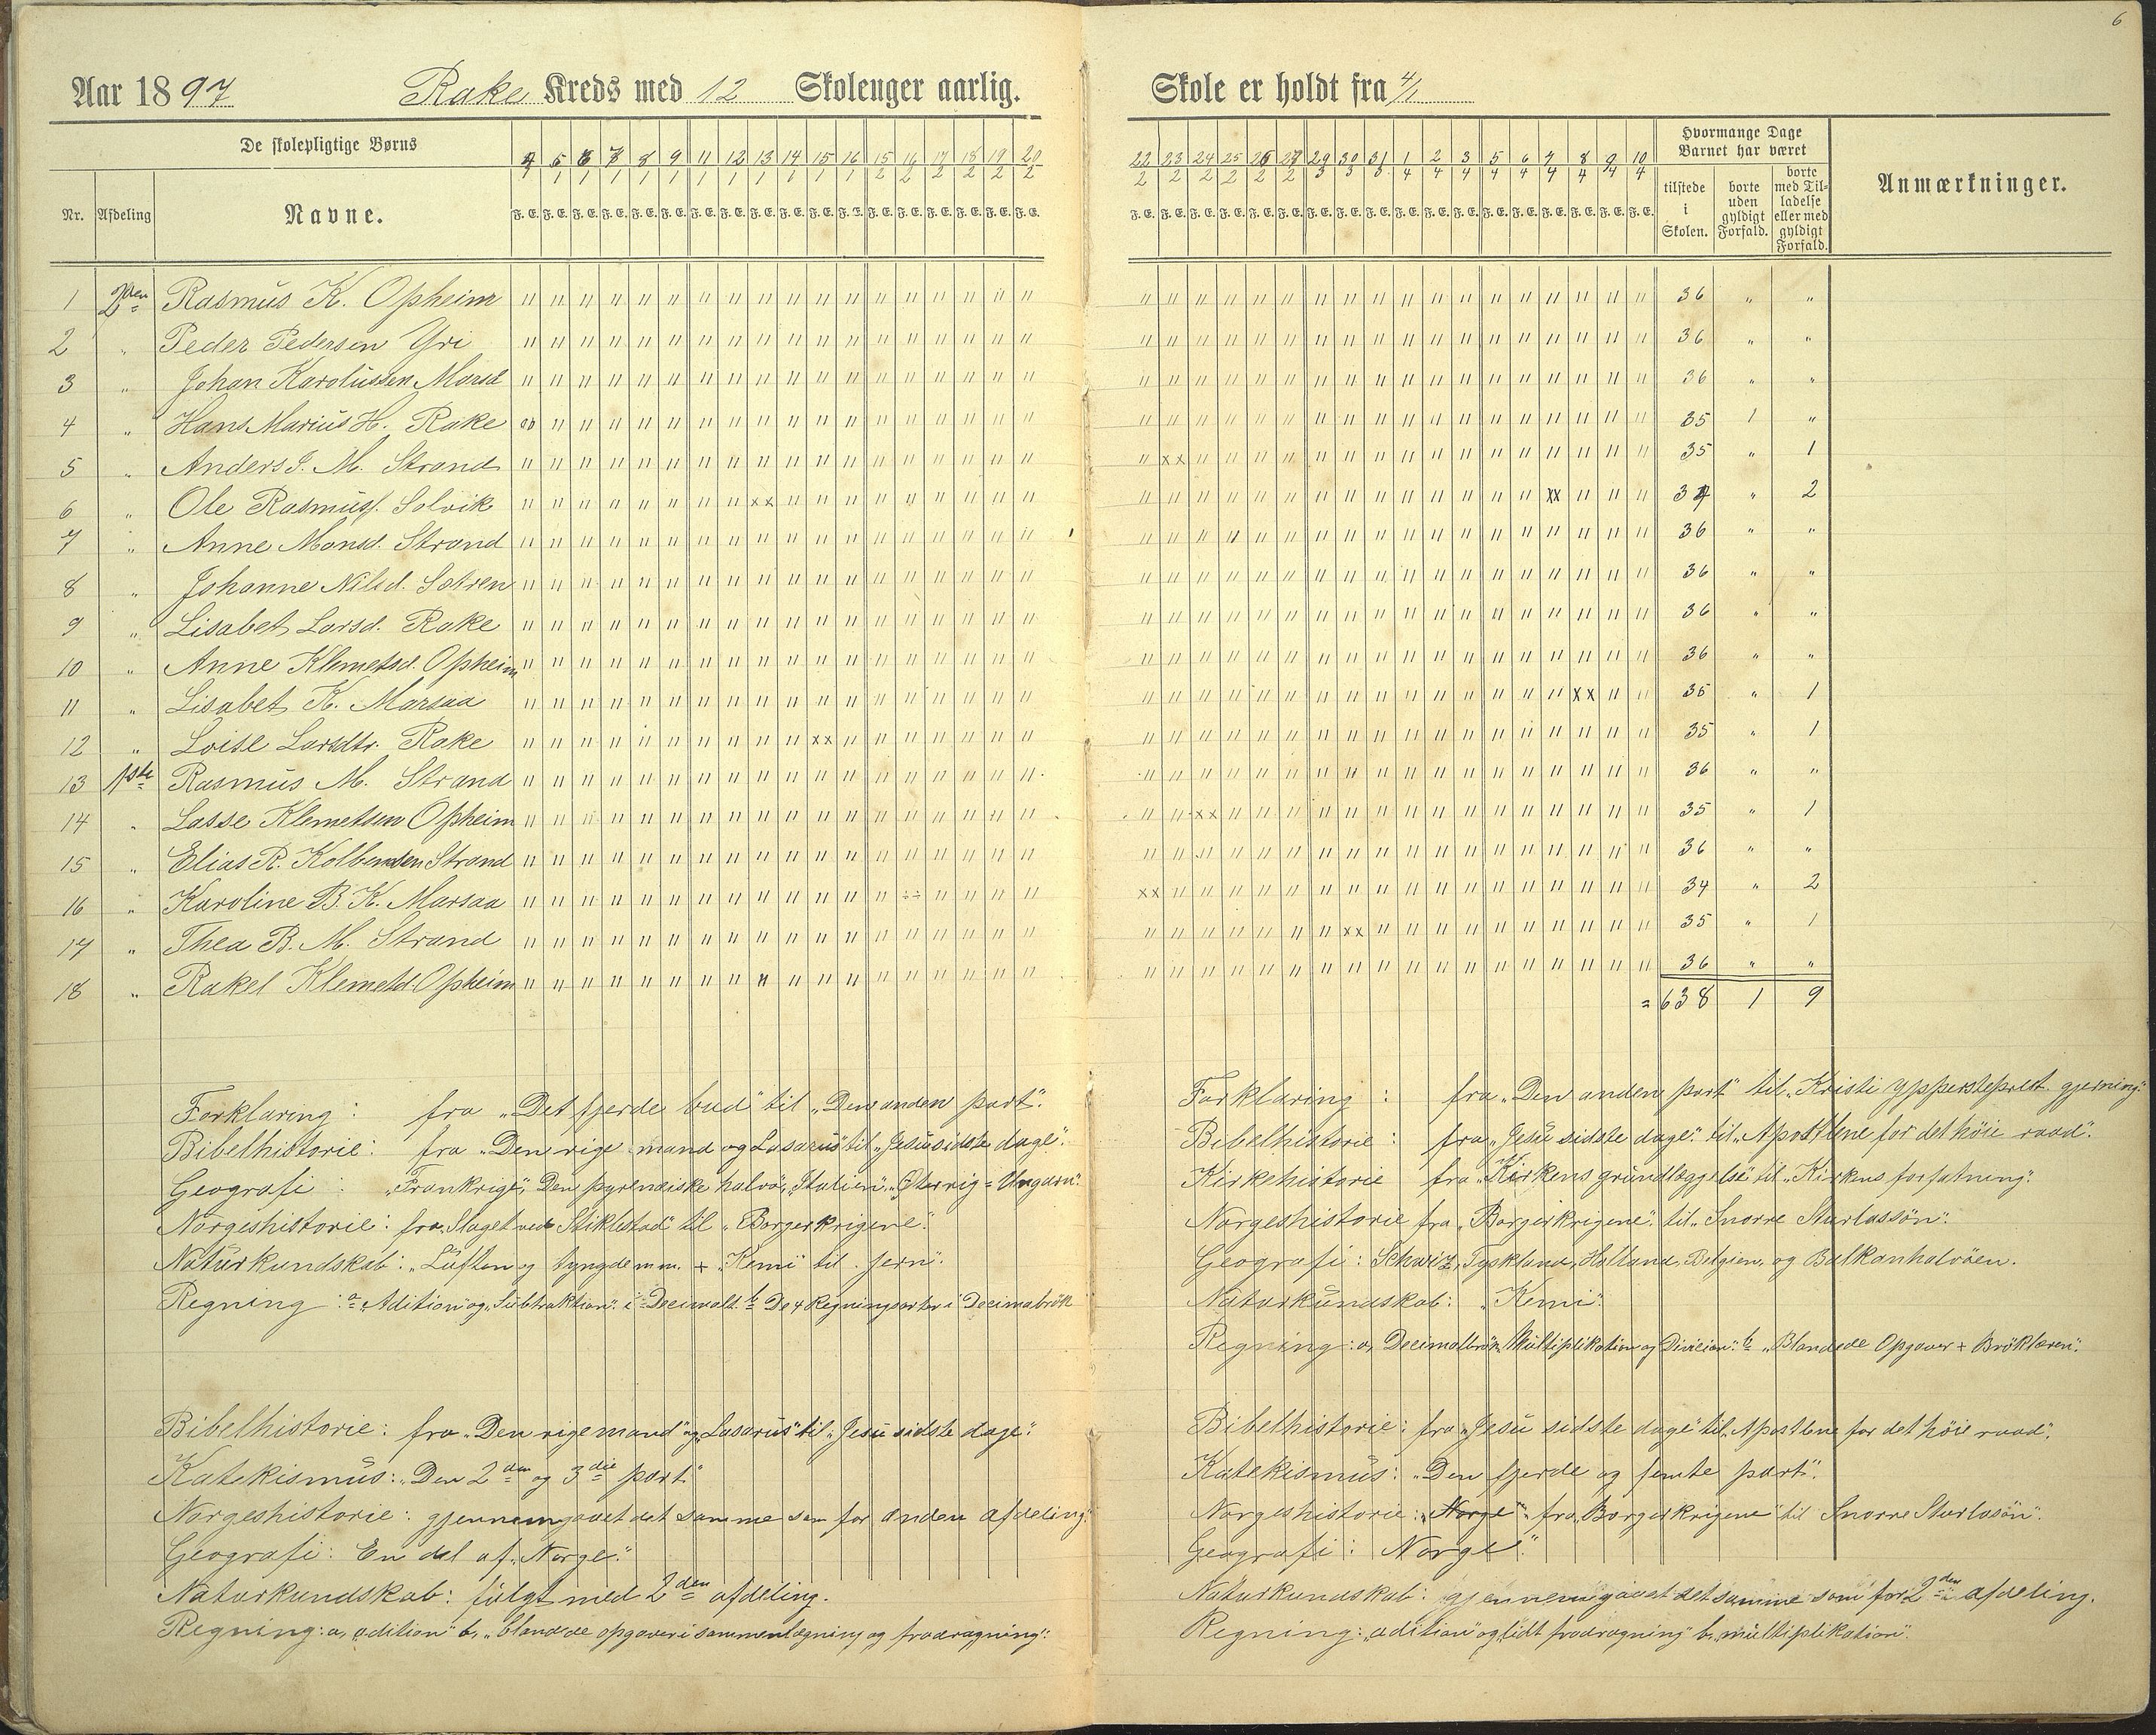 6
Aar 1897 Rake Kreds med 12 Skoleuger aarlig. Skole er holdt fra 4/1
De skolepligtige Børns
Nr. Afdeling Navne.
4 5 6 7 8 9 11 12 13 14 15 16 15 16 17 18 19 20
1 1 1 1 1 1 1 1 1 1 1 1 2 2 2 2 2 2
F. E. F. E. F. E. F. E. F. E. F. E. F. E. F. E. F. E. F. E. F. E. F. E. F. E. F. E. F. E. F. E. F. E. F. E.
22 23 24 25 26 27 29 30 31 1 2 3 5 6 7 8 9 10
2 2 2 2 2 2 3 3 3 4 4 4 4 4 4 4 4 4
F. E. F. E. F. E. F. E. F. E. F. E. F. E. F. E. F. E. F. E. F. E. F. E. F. E. F. E. F. E. F. E. F. E. F. E.
Hvormange Dage Barnet har været
tilstede i Skolen.
borte uden gyldigt Forfald.
borte med Tilladelse eller med gyldigt Forfald.
Anmærkninger.
1 2den Rasmus K. Opheim 36 " "
2 " Peder Pedersen Yri 36 " "
3 " Johan Karolussen Morsd 36 " "
4 " Hans Marius H. Rake 35 1 "
5 " Anders J. M. Strand xx 35 " 1
6 " Ole Rasmusf. Solvik xx xx 34 " 2
7 " Anne Monsd. Strand 36 " "
8 " Johanne Nilsd. Sætren 36 " "
9 " Lisabet Larsd. Rake 36 " "
10 " Anne Klemetsd. Opheim 36 " "
11 " Lisabet K. Marsaa xx 35 " 1
12 " Loise Larsdtr. Rake xx 35 " 1
13 1ste Rasmus M. Strand 36 " "
14 " Lasse Klemetsen Opheim xx 35 " 1
15 " Elias R. Kolbensen Strand 36 " "
16 " Karoline B. K. Marsaa ÷÷ xx 34 " 2
17 " Thea B. M. Strand xx 35 " 1
18 " Rakel Klemetd. Opheim 36 " "
= 638 1 9
Forklaring: fra „Det fjerde bud" til „Den anden part".
Bibelhistorie: fra „Den rige mand og Lasarus" til „Jesu sidste dage".
Geografi: „Frankrige", Den pyrenæiske halvø", „Italien", „Østerrig=Ungarn".
Norgeshistorie: fra „Slaget ved Stiklestad" til „Borgerkrigene".
Naturkundskab: „Luften og tyngde m.m. + „Kemi" til jern".
Regning: a „Adition" og „Subtraktion" i Decimalb. b De 4 Regningsarter i Decimalbrøk
Bibelhistorie: fra „Den rige mand" og „Lasarus" til „Jesu sidste dage".
Katekismus: „Den 2den og 3die part."
Norgeshistorie: gjennemgaaet det samme som for anden afdeling."
Geografi: En del af „Norge."
Naturkundskab: fulgt med 2den afdeling.
Regning: a, „adition" b, „blandede opgaver i sammenlægning og fradragning".
Forklaring: fra „Den anden part" til „Kristi ypperstepræst. gjerning."
Bibelhistorie: fra „Jesu sidste dage" til „Apostlene for det høie raad".
Kirkehistorie fra „Kirkens grundlæggelse" til „Kirkens forfatning".
Norgeshistorie fra „Borgerkrigene" til „Snorre Sturlassøn".
Geografi: Schweiz, Tyskland, Holland, Belgien, og Balkanhalvøen.
Naturkundskab: „Kemi".
Regning: a, Decimalbrøk Multiplikation og Division". b „Blandede Opgaver + Brøklæren".
Bibelhistorie: fra „Jesu sidste dage" til „Apostlene for det høie raad".
Katekismus: „Den fjerde og femte part".
Norgeshistorie: „Norge" fra „Borgerkrigene" til Snorre Sturlasøn".
Geografi: Norge".
Naturkundskab: gjennemgaaet det samme som for 2den afdeling.
Regning: „adition" og „lidt fradragning" b, „multiplikation".